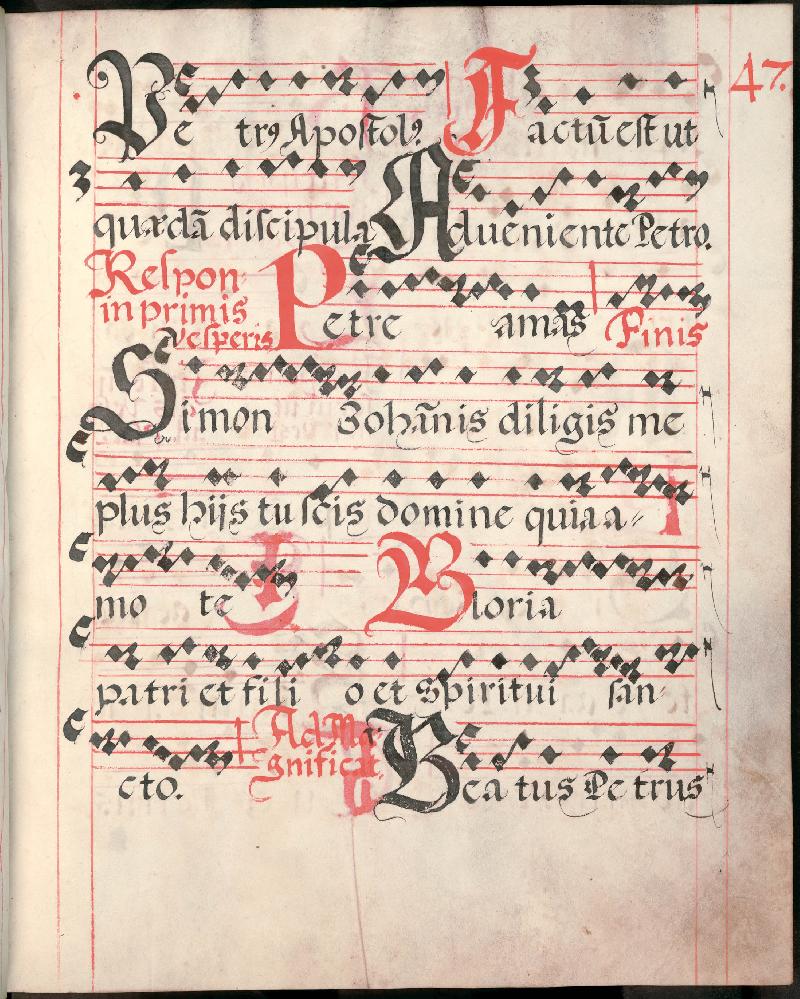 47.
Petrꝰ Apostolꝰ. Factū est ut
quædā discipula Adueniente Petro.
Respon
in primis
vesperis Petre amas Finis
Simon Johānis diligis me
plus hijs tu scis domine quia a-
mo te Gloria
patri et fili o et Spiritui san-
cto. Ad Ma-
gnificat. Beatus Petrus